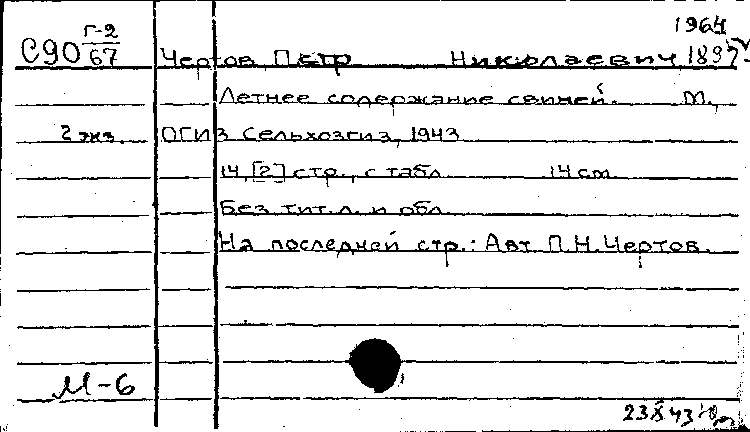 1964
С90 Г-2/67 Чертов Петр Николаевич 1897
Летнее содержание свиней. М.,
2 экз. ОГИЗ Сельхозгиз, 1943
14,[2] стр., с табл. 14 cm
Без тит.л. и обл.
На последней стр.: Авт. П.Н.Чертов.
М-6
23 X 43